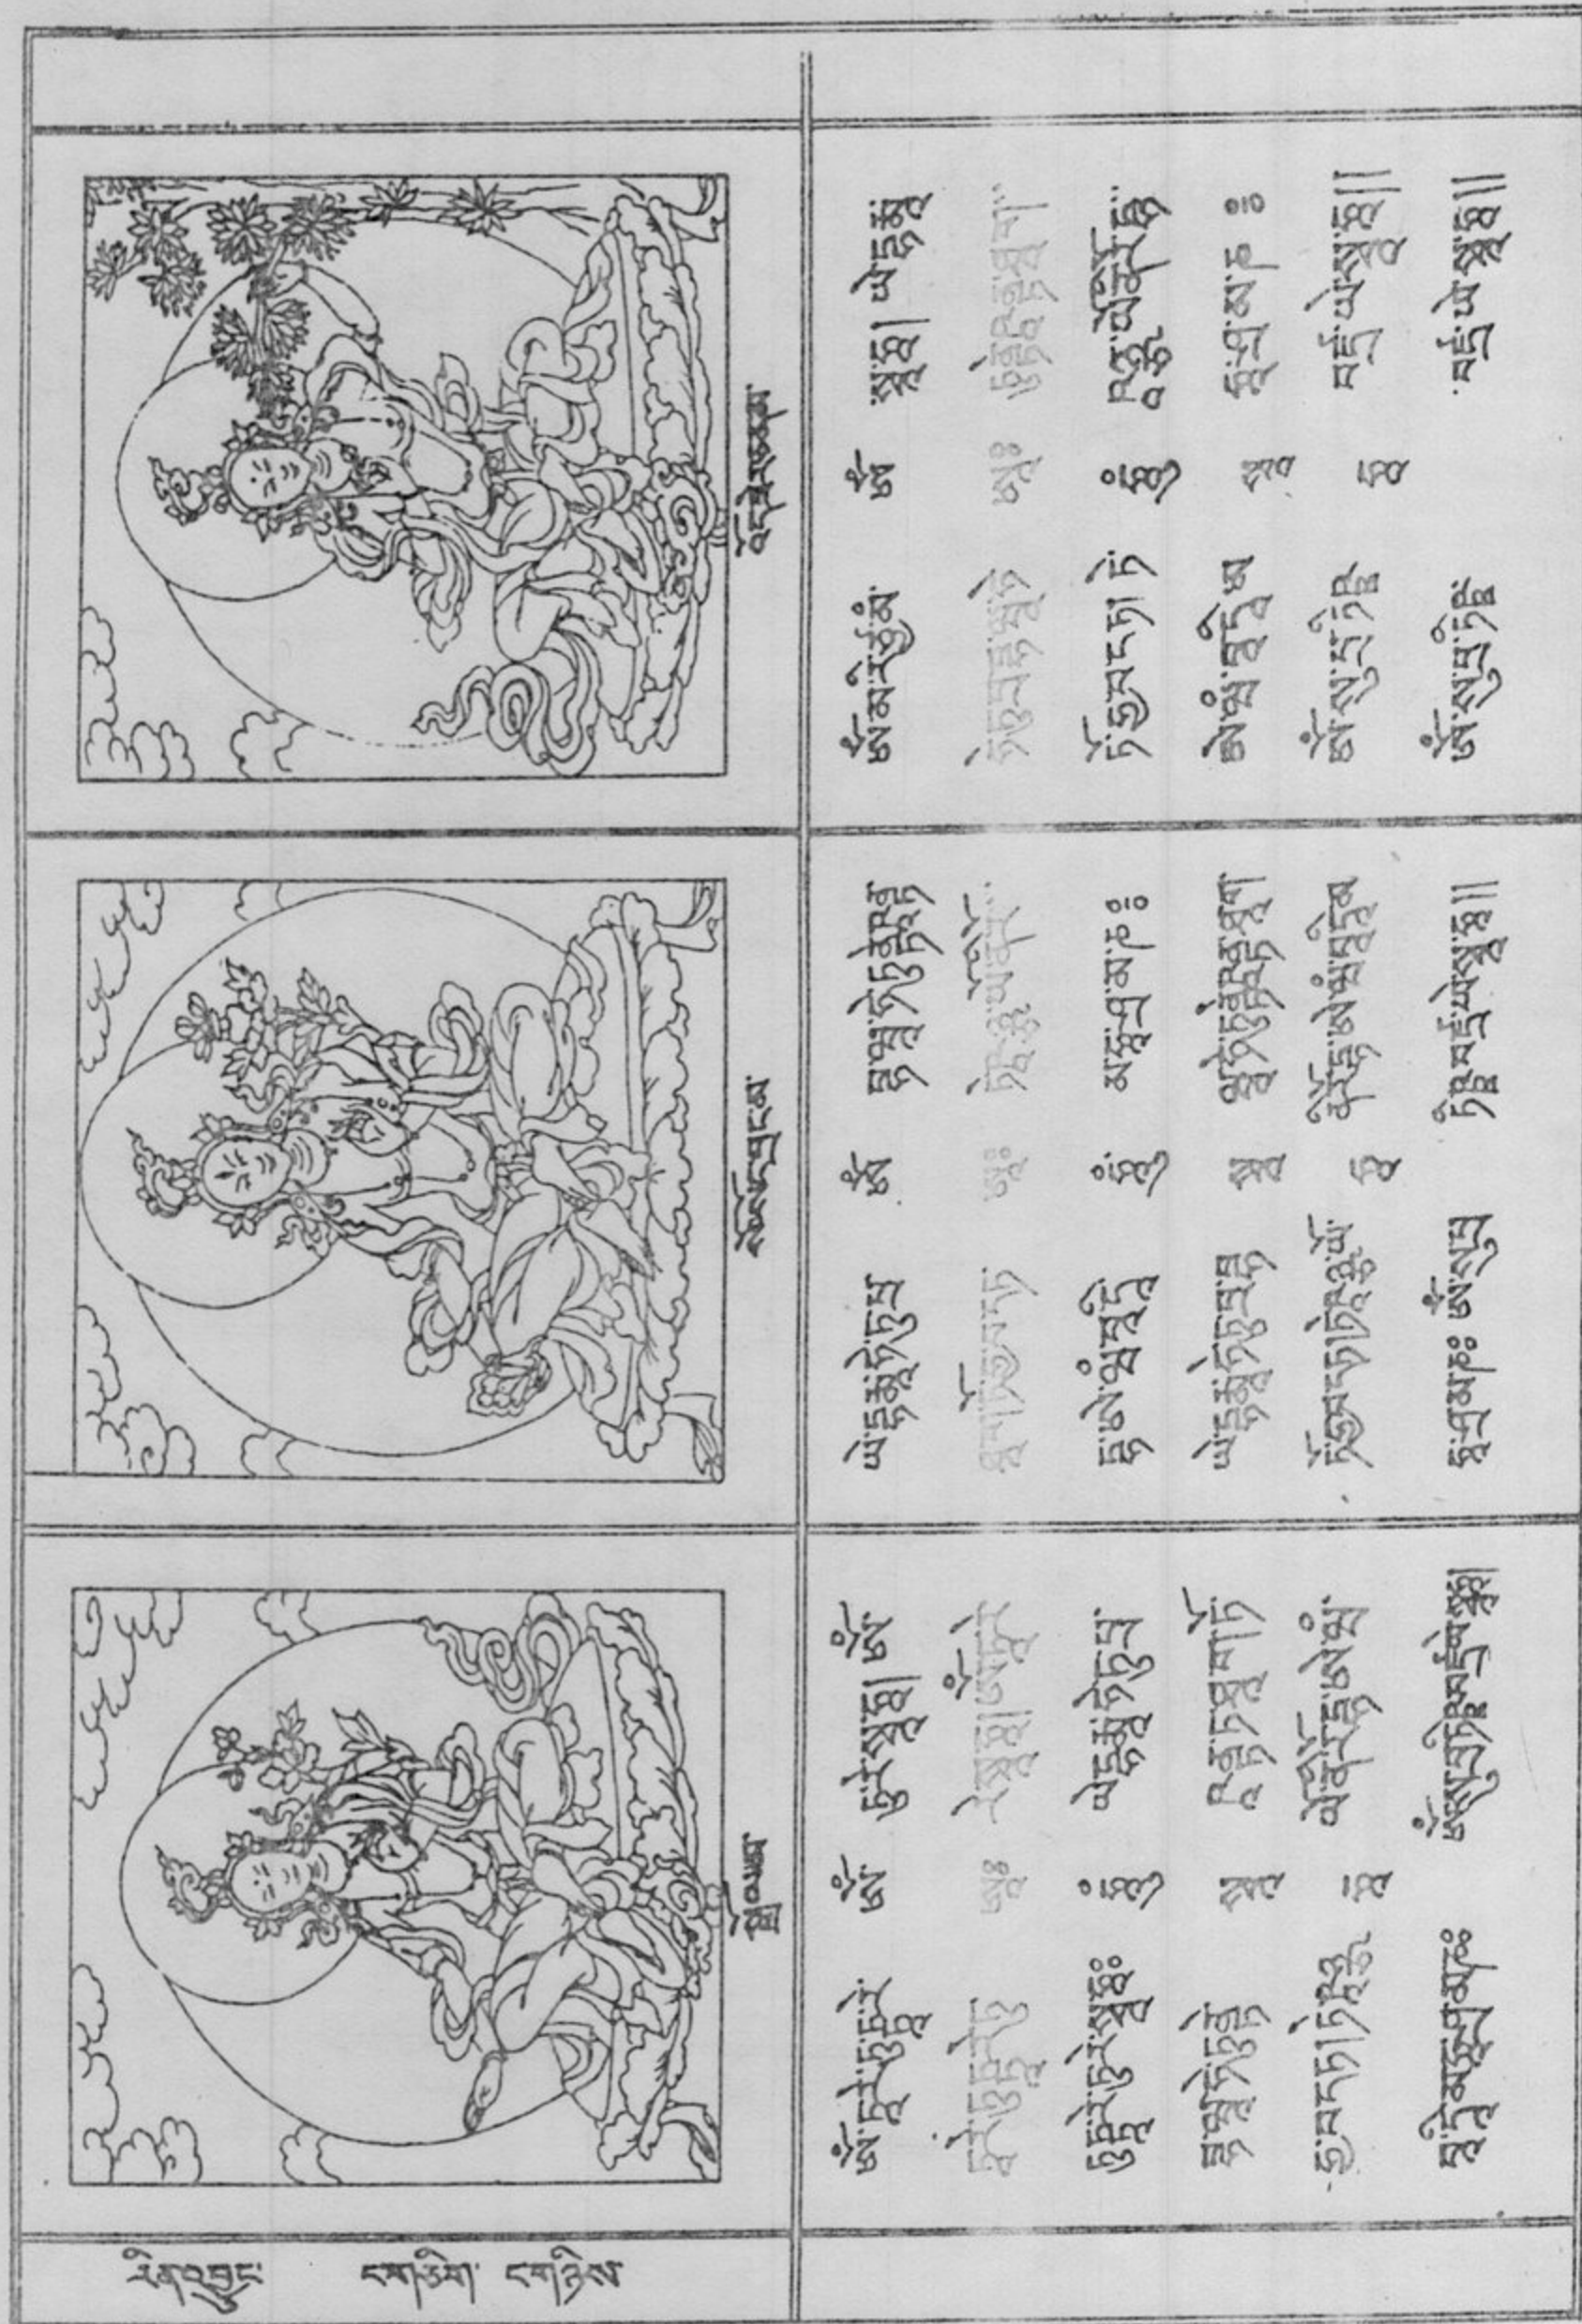 རིན་འབྱུང་ ངག་ཅིག་ ངག་ཉིས
འོད་ཟེར་ཅན་མ་
ཨོཾ་ཏཱ་རེ་ཏུཏྟཱ་རེ་ ཨོཾ་ ཏུ་རེ་སྭཱ་ཧཱ། ཨོཾ་
ཏཱ་རེ་ཏུཏྟཱ་རེ་ཏུ ཨཱཿ རེ་སྭཱཧཱ། ཨོཾ་ཏཱ་རེ
ཏུཏྟཱ་རེ་ཏུ་རེ་སྭཱཧཱཿ ཧཱུྃ ཡེ་དྷརྨཱ་ཧེ་ཏུ་པྲ་
བྷ་ཝཱ་ཧེ་ཏུནྟེ སྭཱ ཥཱནྟ་ཐཱ་ག་ཏོ
ཧྱ་ཝ་དཏ། ཏེ་ཥཱཉྩ ཧཱ ཡོ་ནི་རོ་དྷ་ཨེ་ཝཾ་
ཝཱ་དཱི་མ་ཧཱ་ཤྲ་མ་ཎཿ ཨོཾ་སུ་པྲ་ཏིཥྛ་བཛྲ་ཡེ་སྭཱཧཱ།
ཡེ་དྷརྨཱ་ཧེ་ཏུ་པྲ ཨོཾ བྷ་ཝཱ་ཧེ་ཏུནྟེཥཱནྟ
ཐཱ་ག་ཏོ་ཧྱ་ཝ་དཏ ཨཱཿ ཏེ་ཥཱཉྩ་ཡོ་ནི་རོ་
དྷ་ཨེ་ཝཾ་ཝཱ་དཱི ཧཱུྃ མ་ཧཱ་ཤྲ་མ་ཎཿ
ཡེ་དྷརྨཱ་ཧེ་ཏུ་པྲ་བྷ སྭཱ ཝཱ་ཧེ་ཏུནྟེཥཱནྟ་ཐཱ་ག
ཏོ་ཧྱ་ཝ་དཏ། ཏེ་ཥཱཉྩ་ཡོ་ ཧཱ ནི་རོ་དྷ་ཨེ་ཝཾ་ཝཱ་དཱི་མ
ཧཱ་ཤྲ་མ་ཎཿ ཨོཾ་སུ་པྲ ཏིཥྛ་བཛྲ་ཡེ་སྭཱ་ཧཱ༎
ཨོཾ་མཱ་རི་ཙྱཻ་མཾ་ ཨོཾ སྭཱ་ཧཱ། ཡེ་དྷརྨཱ
ཧེ་ཏུ་པྲ་བྷ་ཝཱ་ཧེ ཨཱཿ ཏུནྟེཥཱནྟ་ཐཱ་ག།
ཏོ་ཧྱ་ཝ་དཏ། ཏེ ཧཱུྃ ཥཱཉྩ་ཡོ་ནི་རོ་དྷ་
ཨེ་ཝཾ་ཝཱ་དཱི་མ སྭཱ ཧཱ་ཤྲ་མ་ཎཿ
ཨོཾ་སུ་པྲ་ཏིཥྛ ཧཱ བཛྲ་ཡེ་སྭཱ་ཧཱ༎
ཨོཾ་སུ་པྲ་ཏིཥྛ་ བཛྲ་ཡེ་སྭཱ་ཧཱ༎